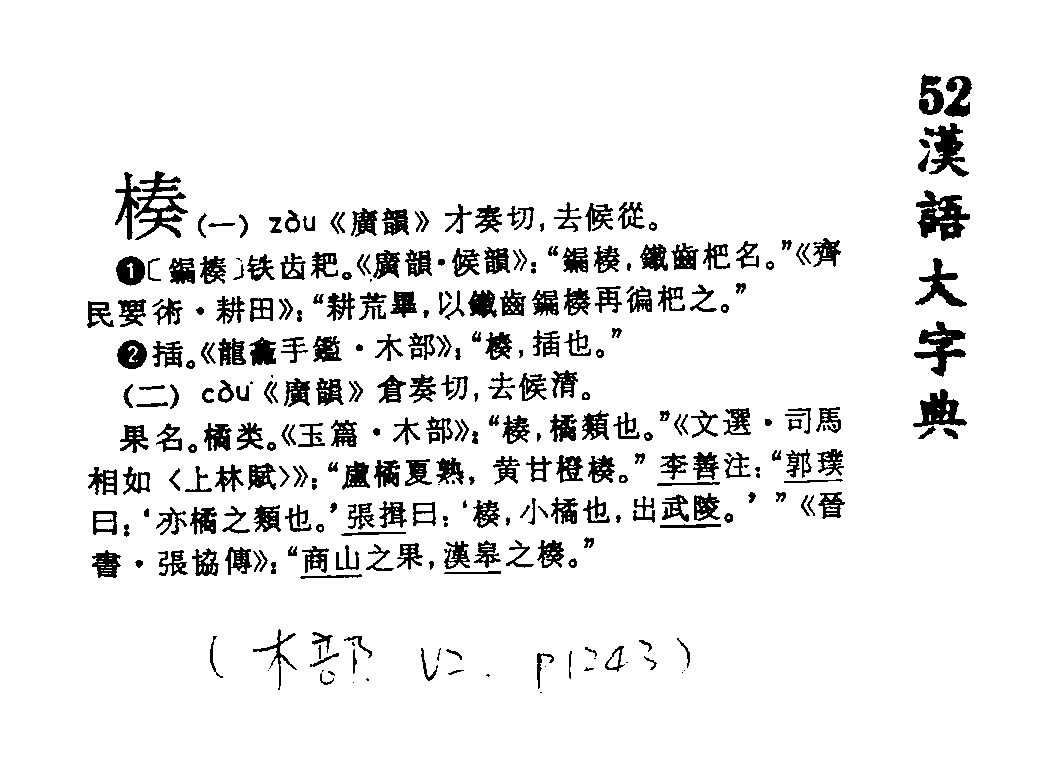 52漢語大字典
楱(一) zòu《廣韻》才奏切,去候從。
❶〔鍽楱〕铁齿耙。《廣韻·候韻》:“鍽楱,鐵齒杷名。”《齊
民要術·耕田》:“耕荒畢,以鐵齒鍽楱再徧杷之。”
❷插。《龍龕手鑑·木部》:“楱,插也。”
(二) còu《廣韻》倉奏切,去候清。
果名。橘类。《玉篇·木部》:“楱,橘類也。”《文選·司馬
相如〈上林賦〉》:“盧橘夏熟,黄甘橙楱。”李善注:“郭璞
曰:‘亦橘之類也。’張揖曰:‘楱,小橘也,出武陵。’”《晉
書·張協傳》:“商山之果,漢皋之楱。”
(木部 V2. p1243)